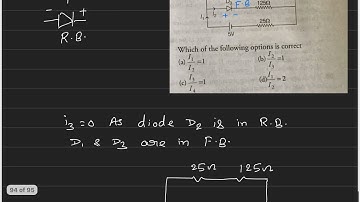 - +
R.B.
F.B
125Ω
I₁
+ -
25Ω
5V
Which of the following options is correct
(a) I₁/I₂=1 (b) I₂/I₃=1
(c) I₃/I₄=1 (d) I₁/I₂=2
i₃=0 As diode D₂ is in R.B.
D₁ & D₃ are in F.B.
25Ω 125Ω
94 of 95